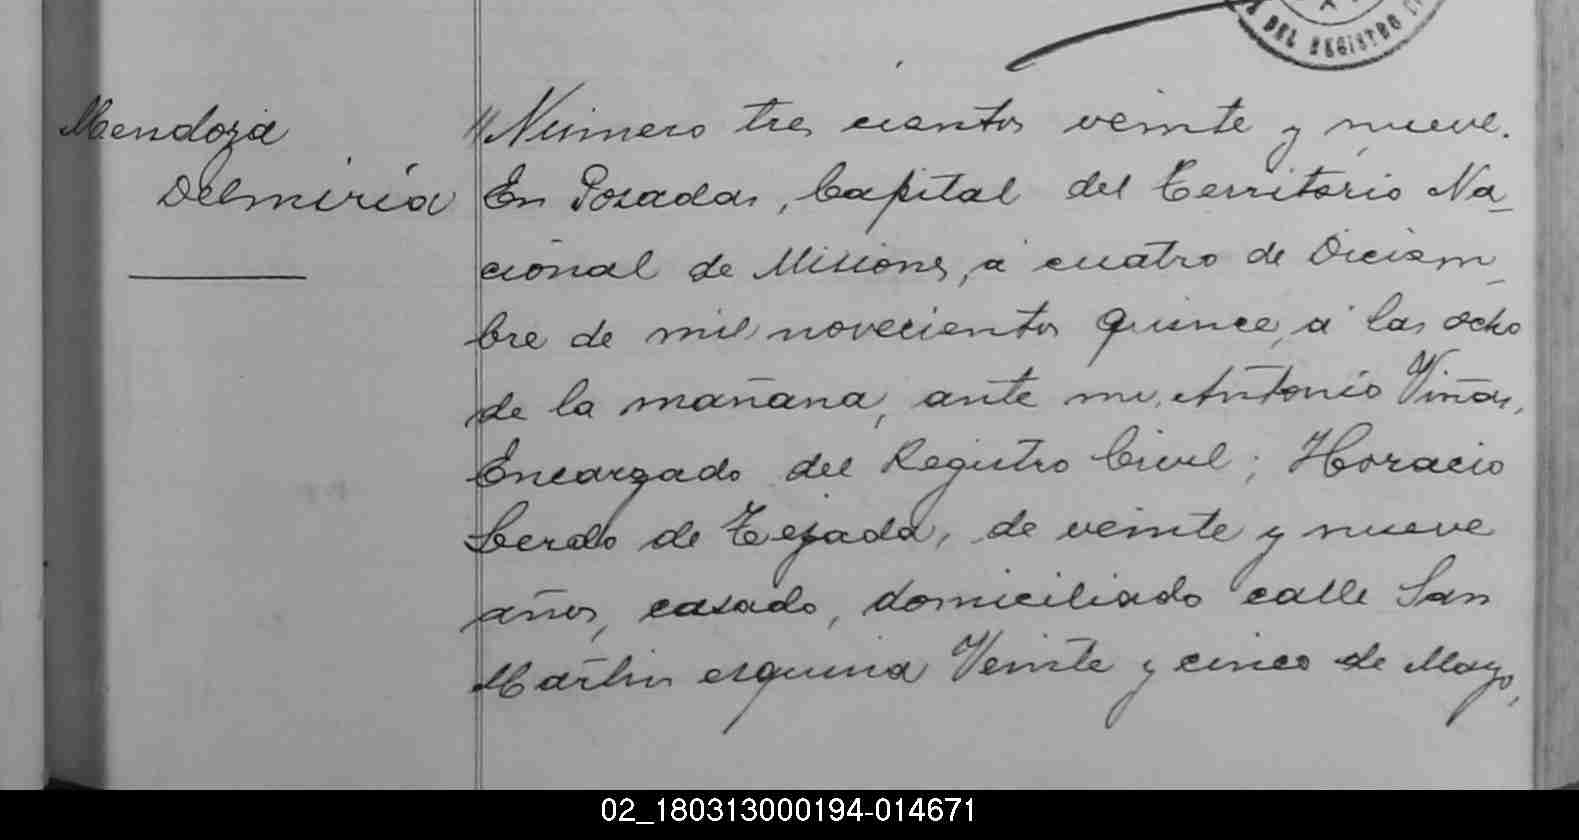 DEL REGISTRO C
Mendoza
Delmiria
"Número tres cientos veinte y nueve.
En Posadas, Capital del Territorio Na_
cional de Misiones, á cuatro de Diciem_
bre de mil novecientos quince, á las ocho
de la mañana, ante mi, Antonio Viñas,
Encargado del Registro Civil; Horacio
Lerdo de Tejada, de veinte y nueve
años, casado, domiciliado calle San
Martin esquina Veinte y cinco de Mayo,
02_180313000194-014671